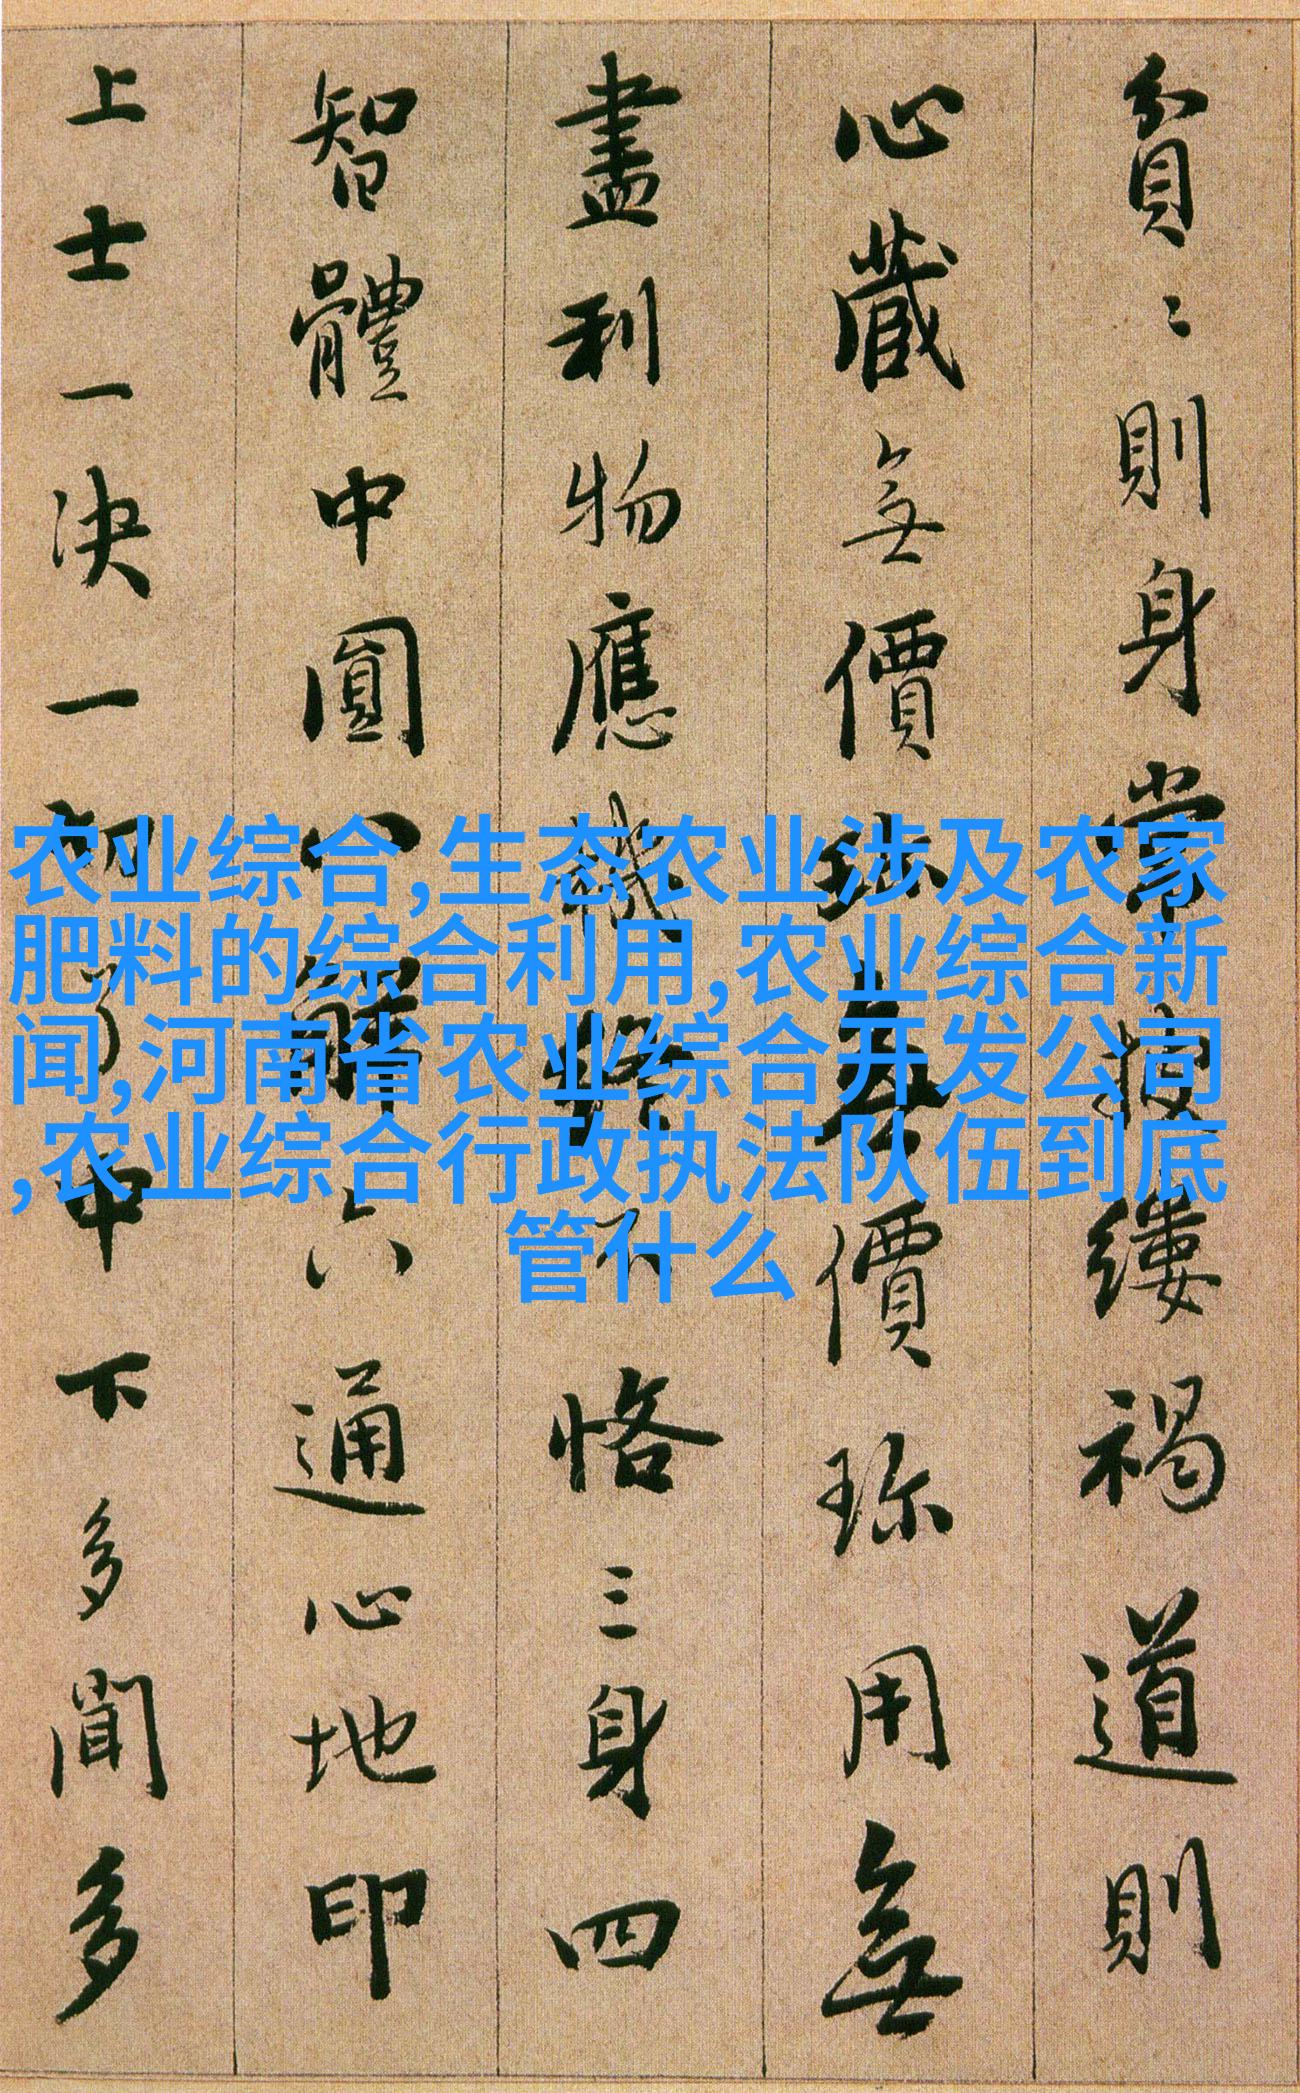 貧〻則身常披縷褐道則
心藏無價珎無價珎用無
盡利物應機終不恪三身四
智體中圓八解六通心地印
上士一决一切了中下多聞多
农业综合,生态农业涉及农家
肥料的综合利用,农业综合新
闻,河南省农业综合开发公司
,农业综合行政执法队伍到底
管什么